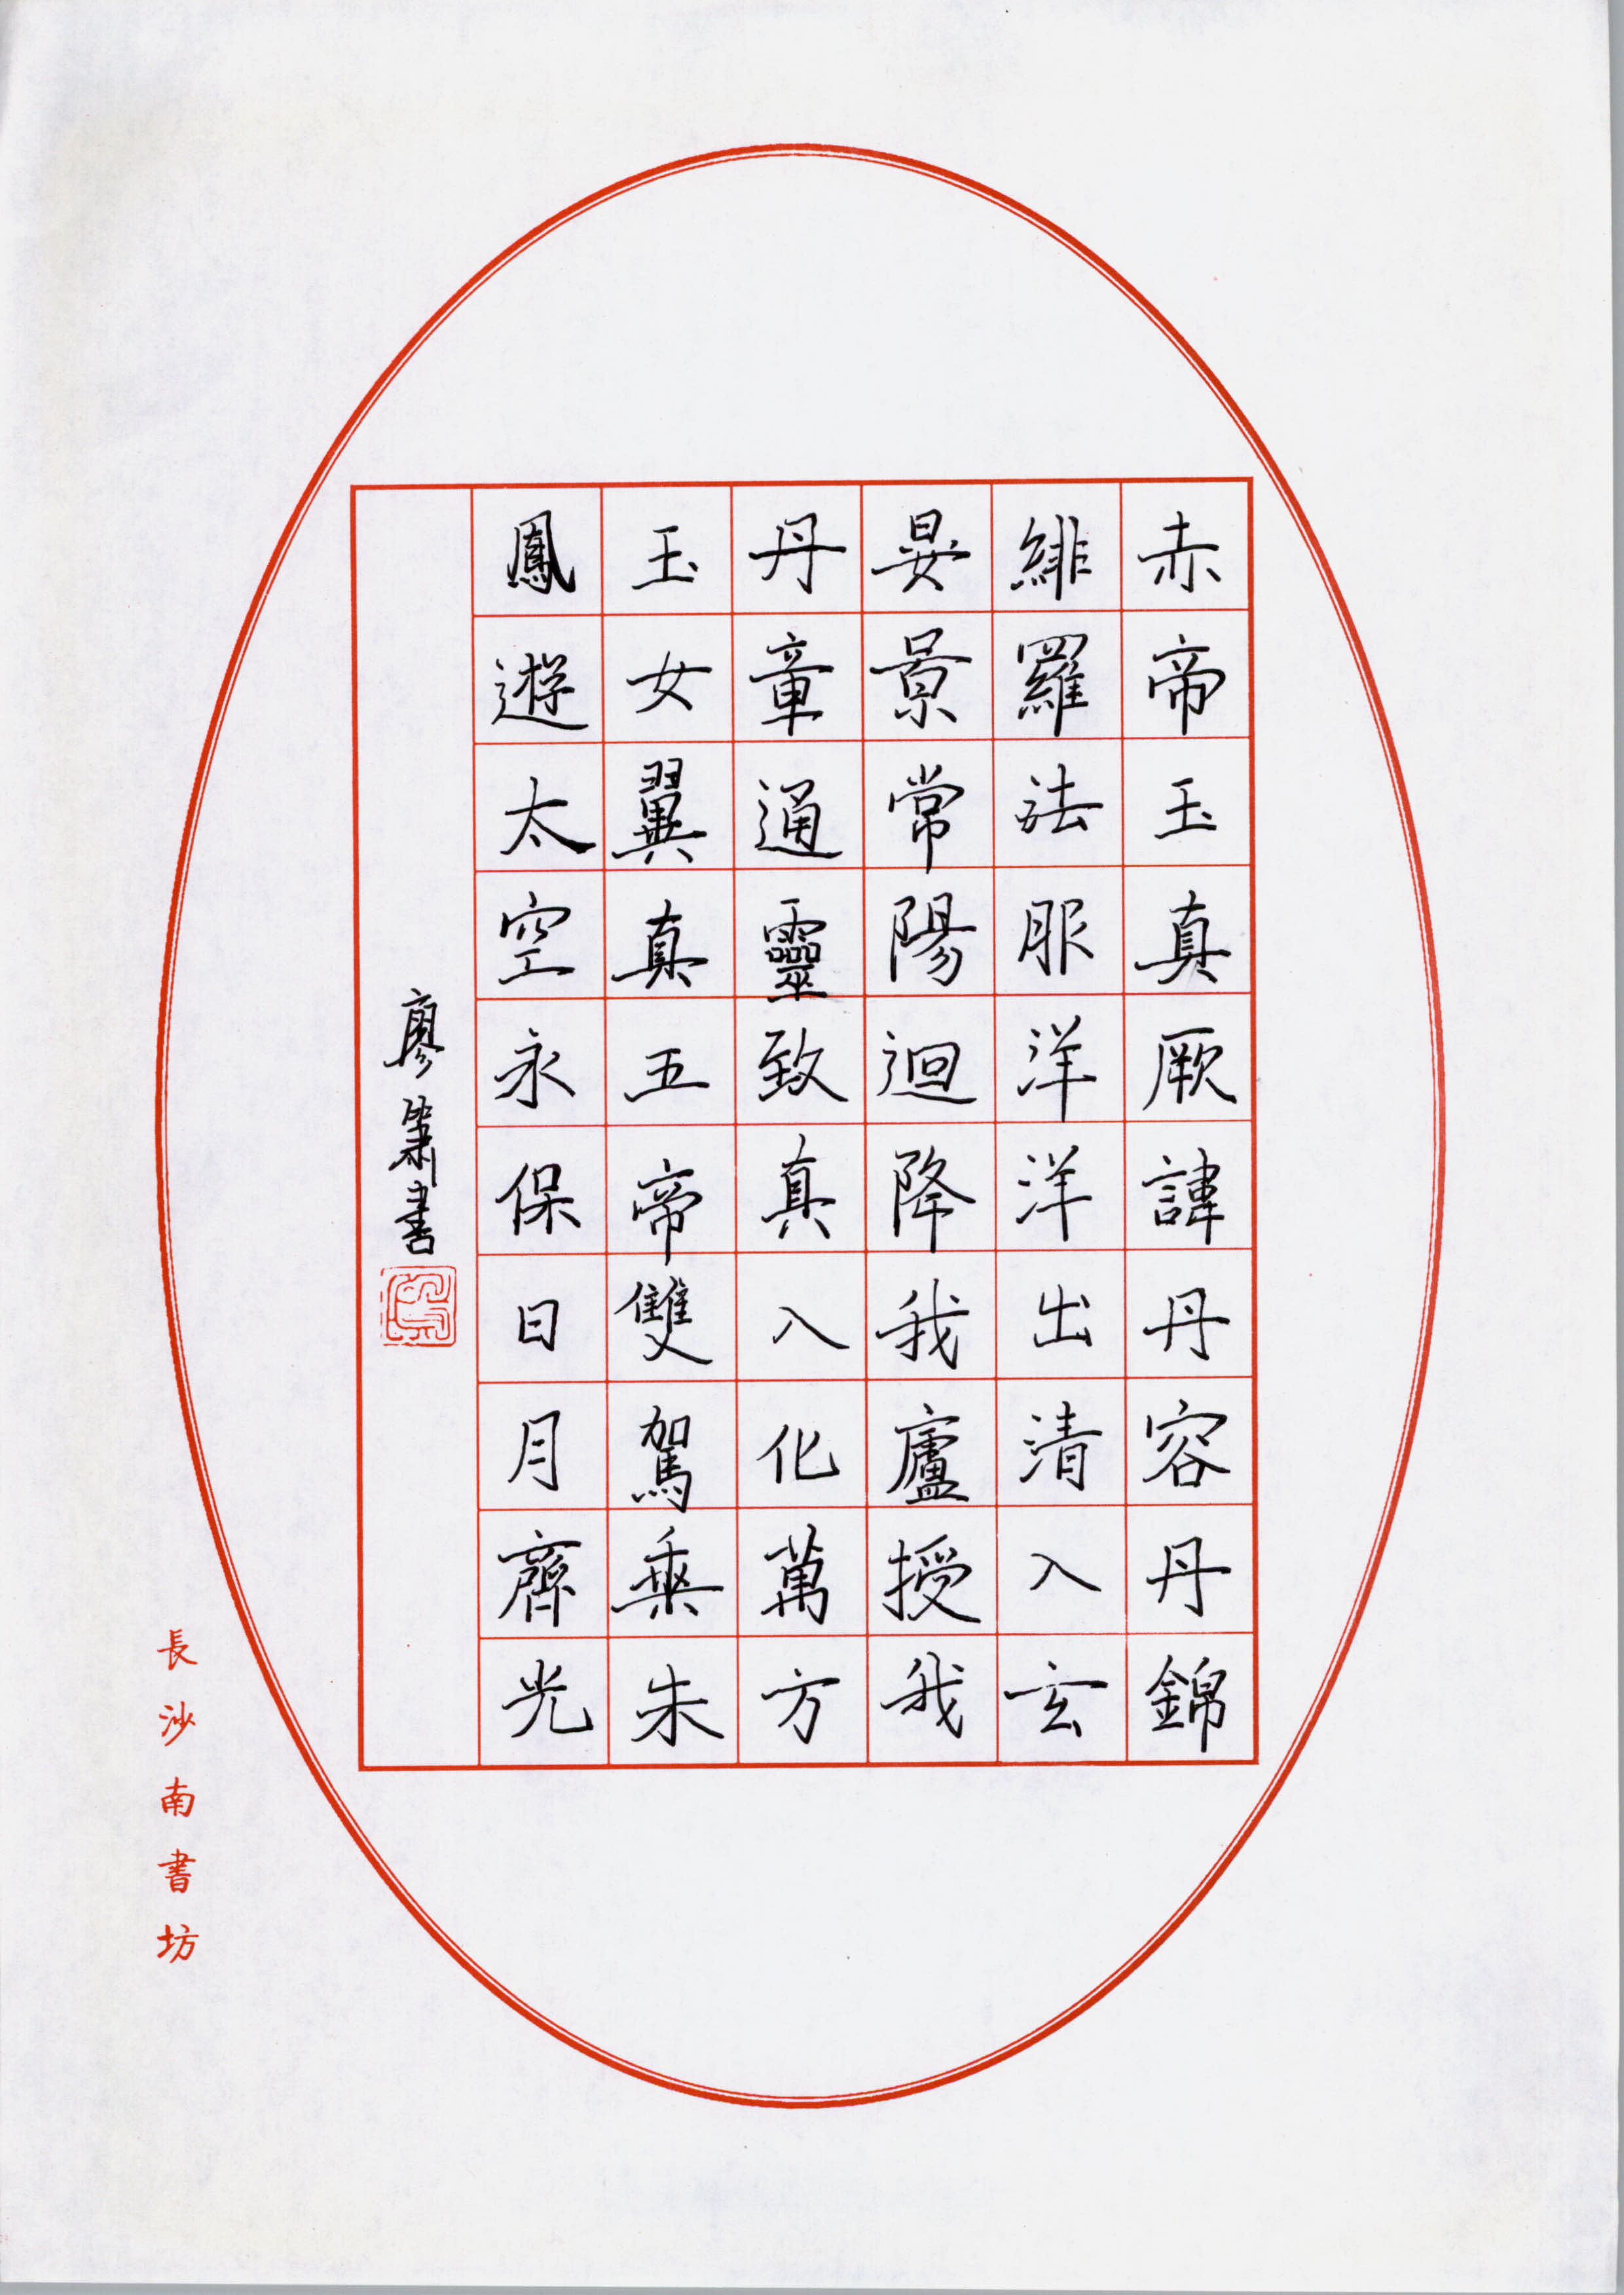 赤帝玉真厥諱丹容丹錦
緋羅法服洋洋出清入玄
晏景常陽迴降我廬授我
丹章通靈致真入化萬方
玉女翼真五帝雙駕乘朱
鳳遊太空永保日月齊光
廖簫書
長沙南書坊